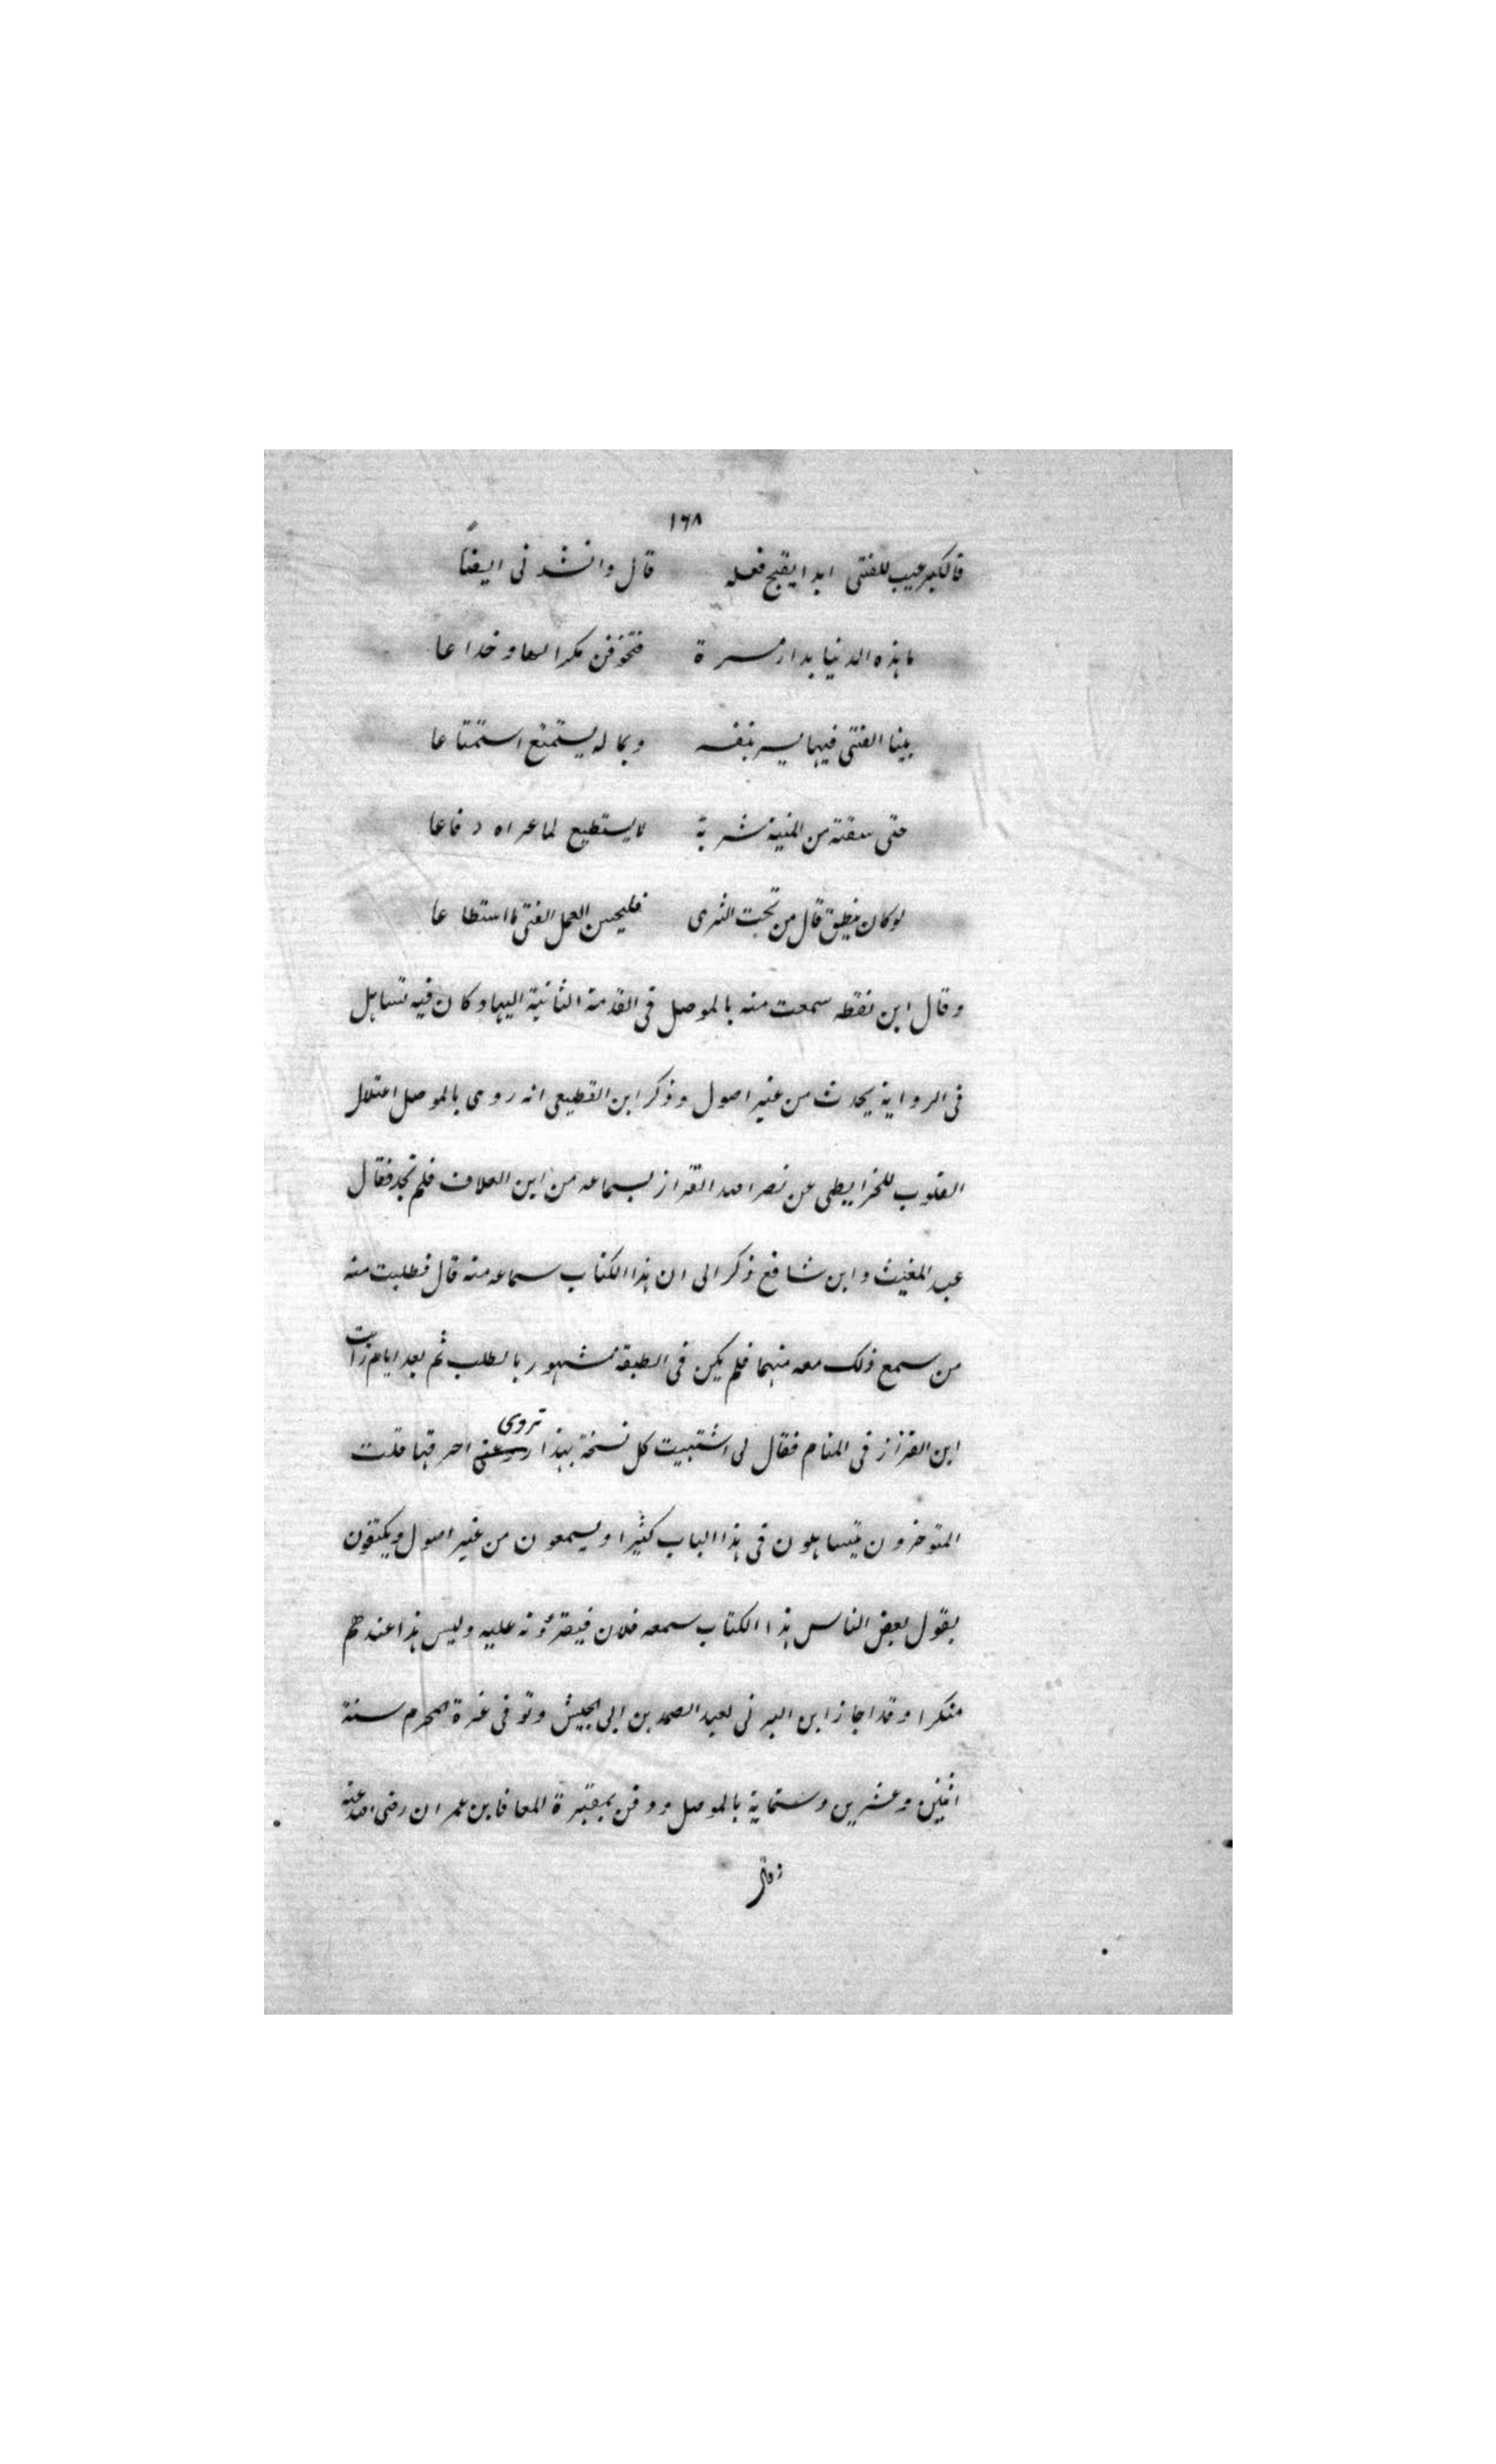 ١٦٨
فالكبر عيب للفتى ابدا يقبح فعله قال وانشدنى ايضًا
ما هذه الدنيا بدار مسرة فتخوفن مكرا لها وخداعا
بينا الفتى فيها يسر بنفسه وبماله يستمتع استمتاعا
حتى سقته من المنية شربة لا يستطيع لما عراه دفاعا
لو كان ينطق قال من تحت الثرى فليحسن العمل الفتى ما استطاعا
وقال ابن نقطه سمعت منه بالموصل فى القدمة الثانية اليها وكان فيه تساهل
فى الرواية يحدث من غير اصول وذكر ابن القطيعى انه روى بالموصل اعتلال
القلوب للخرايطى عن نصر الله القزاز بسماعه من ابن العلاف فلم نجد فقال
عبد المغيث وابن شافع ذكر الى ان هذا الكتاب سماعه منه قال فطلبت منه
من سمع ذلك معه منهما فلم يكن فى الطبقة مشهور بالطلب ثم بعد ايام رأيت
ابن القزاز فى المنام فقال لى اشتبيت كل نسخة بهذا تروى عنى احرقها قلت
المتوخرون يتساهلون فى هذا الباب كثيرا ويسمعون من غير اصول ويكتفون
بقول بعض الناس هذا الكتاب سمعه فلان فيقرؤنه عليه وليس هذا عندهم
منكرا وقد اجاز ابن البرنى لعبد الصمد بن ابى الجيش وتوفى غرة المحرم سنة
اثنين وعشرين وستماية بالموصل ودفن بمقبرة المعافا بن عمران رضى الله عنه